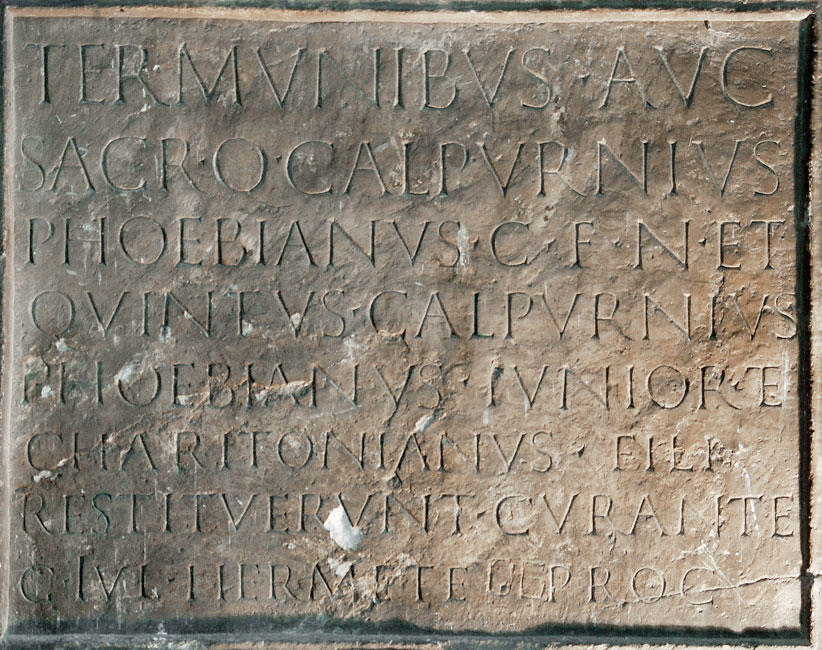 TERMVNIBVS · AVG
SACR · Q · CALPVRNIVS
PHOEBIANVS · C · F · N · ET
QVINTVS · CALPVRNIVS
PHOEBIANVS · IVNIOR · E
CHARITONIANVS · FILI
RESTITVERVNT · CVRANTE
C · IVL · HERMETE PROC